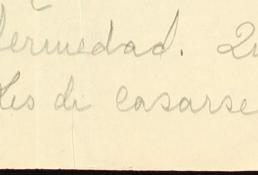 fermedad. 2u
tes di casarse